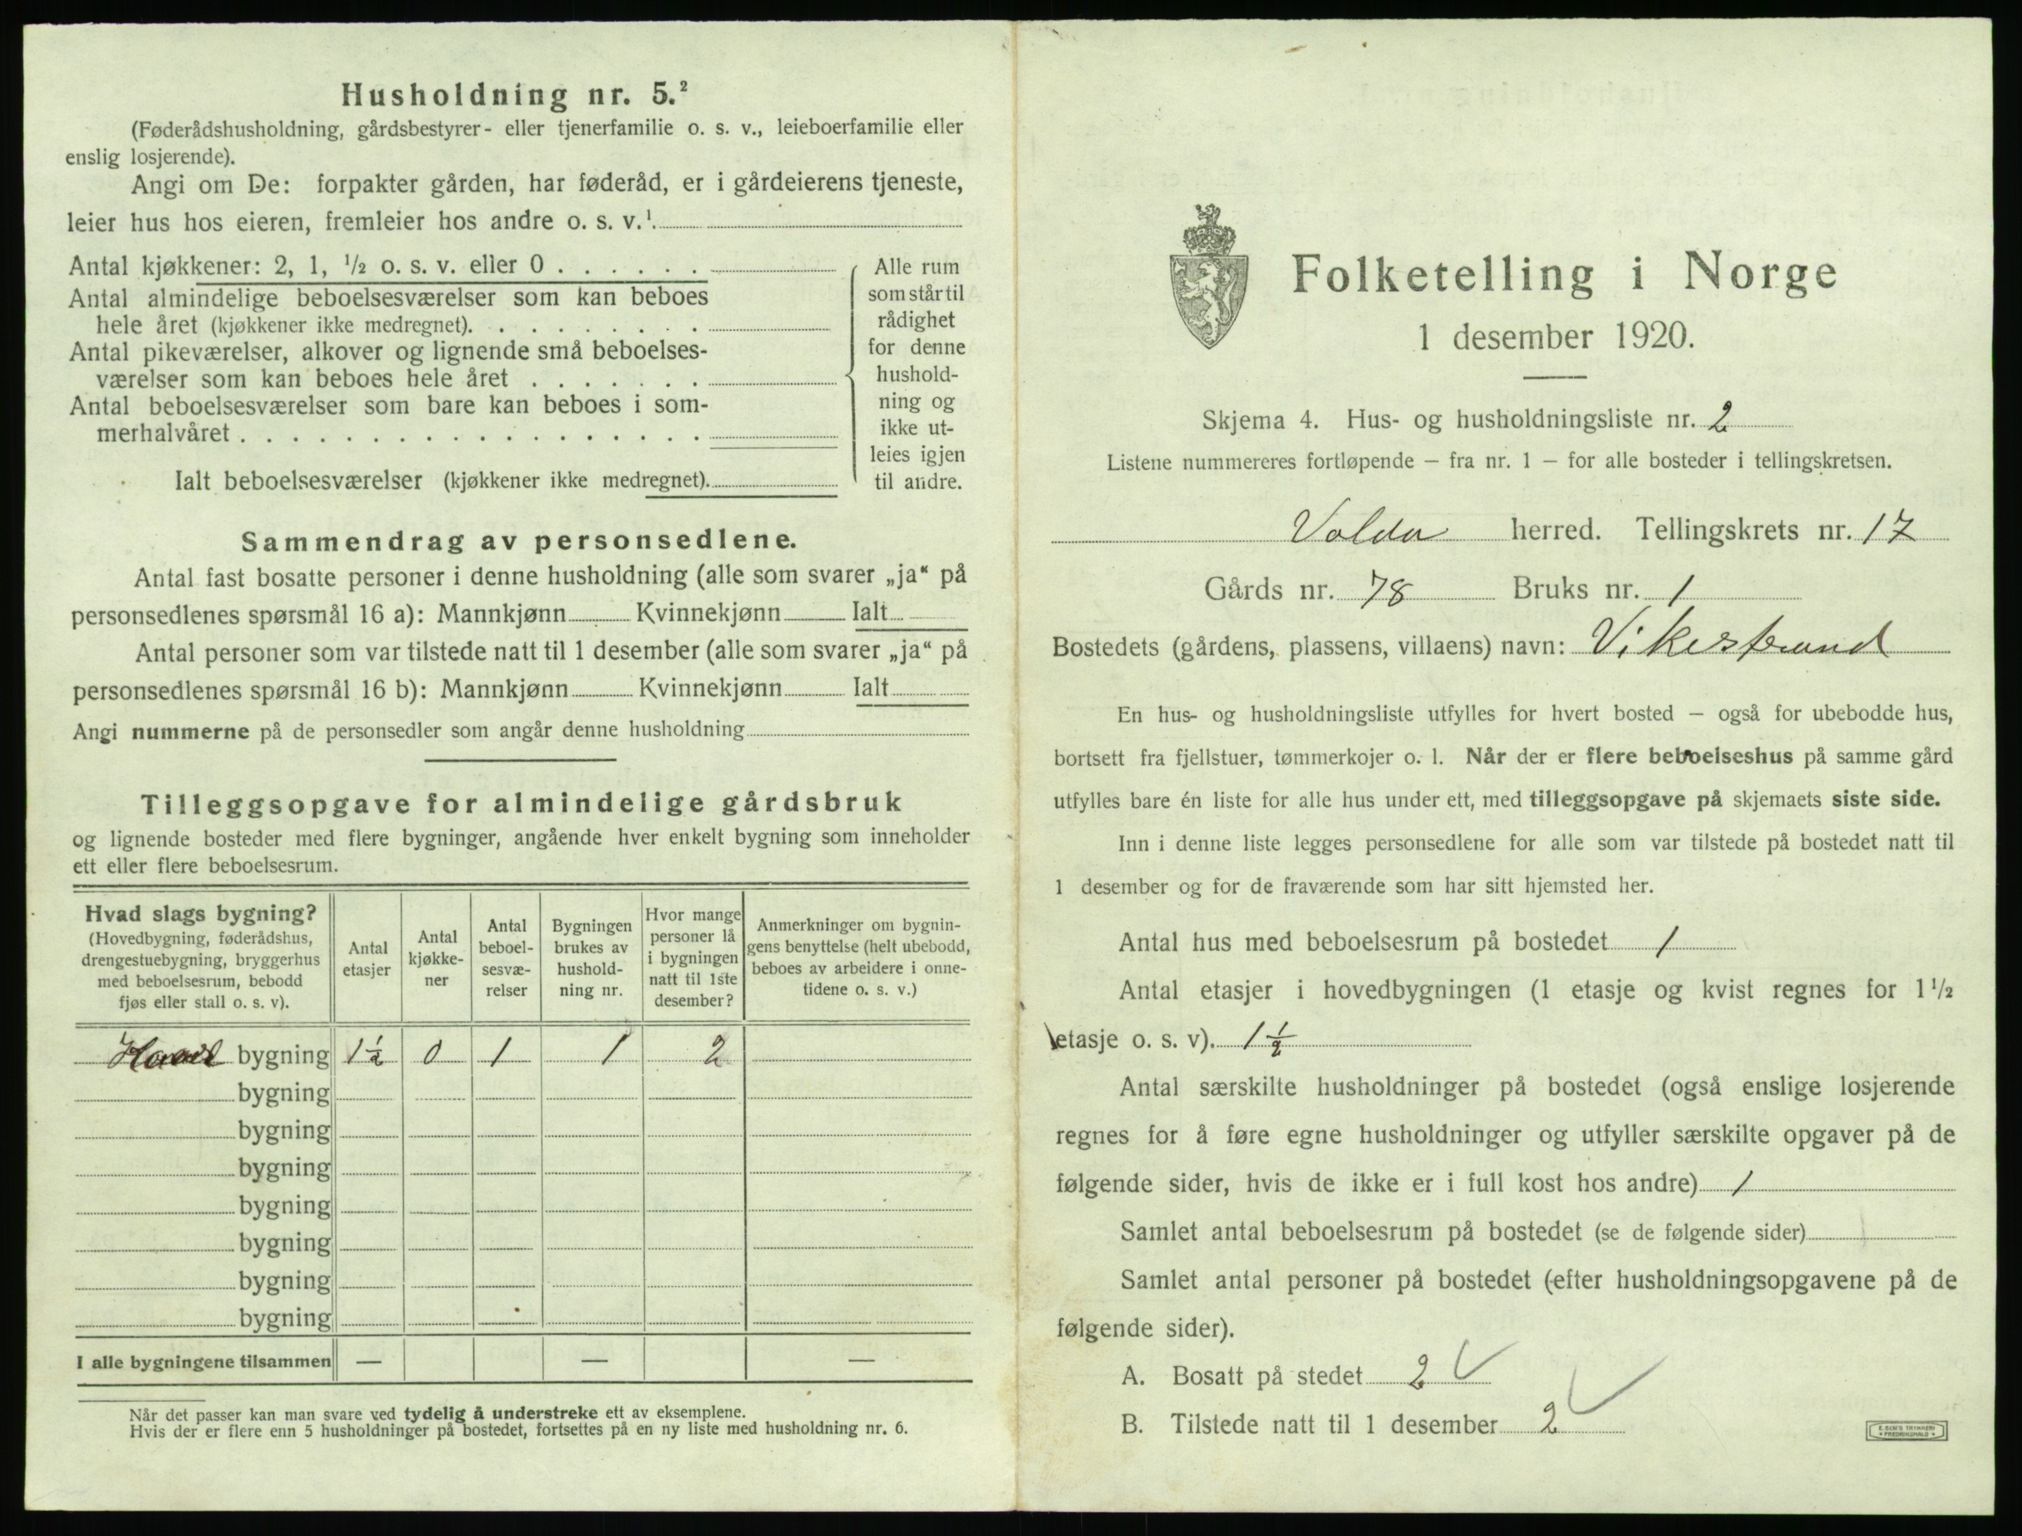 Husholdning nr. 5.²
(Føderådshusholdning, gårdsbestyrer- eller tjenerfamilie o. s. v., leieboerfamilie eller
enslig losjerende).
Angi om De: forpakter gården, har føderåd, er i gårdeierens tjeneste,
leier hus hos eieren, fremleier hos andre o. s. v.¹
Antal kjøkkener: 2, 1, ½ o. s. v. eller 0 . . . . . .
Antal almindelige beboelsesværelser som kan beboes
hele året (kjøkkener ikke medregnet). . . . . . . . .
Antal pikeværelser, alkover og lignende små beboelses-
værelser som kan beboes hele året . . . . . . .
Antal beboelsesværelser som bare kan beboes i som-
merhalvåret . . . . . . . . . . . . . . . . . .
Ialt beboelsesværelser (kjøkkener ikke medregnet).
Alle rum
som står til
rådighet
for denne
hushold-
ning og
ikke ut-
leies igjen
til andre.
Sammendrag av personsedlene.
Antal fast bosatte personer i denne husholdning (alle som svarer „ja“ på
personsedlenes spørsmål 16 a): Mannkjønn Kvinnekjønn Ialt
Antal personer som var tilstede natt til 1 desember (alle som svarer „ja“ på
personsedlenes spørsmål 16 b): Mannkjønn Kvinnekjønn Ialt
Angi nummerne på de personsedler som angår denne husholdning
Tilleggsopgave for almindelige gårdsbruk
og lignende bosteder med flere bygninger, angående hver enkelt bygning som inneholder
ett eller flere beboelsesrum.
Hvad slags bygning?
(Hovedbygning, føderådshus,
drengestuebygning, bryggerhus
med beboelsesrum, bebodd
fjøs eller stall o. s. v).
Antal
etasjer
Antal
kjøkke-
ner
Antal
beboel-
sesvæ-
relser
Bygningen
brukes av
hushold-
ning nr.
Hvor mange
personer lå
i bygningen
natt til 1ste
desember?
Anmerkninger om bygnin-
gens benyttelse (helt ubebodd,
beboes av arbeidere i onne-
tidene o. s. v.)
bygning 1½ 0 1 1 2
bygning
bygning
bygning
bygning
bygning
bygning
bygning
I alle bygningene tilsammen — — —
Når det passer kan man svare ved tydelig å understreke ett av eksemplene.
Hvis der er flere enn 5 husholdninger på bostedet, fortsettes på en ny liste med husholdning nr. 6.
Folketelling i Norge
1 desember 1920.
Skjema 4. Hus- og husholdningsliste nr. 2
Listene nummereres fortløpende — fra nr. 1 — for alle bosteder i tellingskretsen.
Volda herred. Tellingskrets nr. 17
Gårds nr. 78 Bruks nr. 1
Bostedets (gårdens, plassens, villaens) navn: Vikestrand
En hus- og husholdningsliste utfylles for hvert bosted — også for ubebodde hus,
bortsett fra fjellstuer, tømmerkojer o. l. Når der er flere beboelseshus på samme gård
utfylles bare én liste for alle hus under ett, med tilleggsopgave på skjemaets siste side.
Inn i denne liste legges personsedlene for alle som var tilstede på bostedet natt til
1 desember og for de fraværende som har sitt hjemsted her.
Antal hus med beboelsesrum på bostedet 1
Antal etasjer i hovedbygningen (1 etasje og kvist regnes for 1½
etasje o. s. v). 1½
Antal særskilte husholdninger på bostedet (også enslige losjerende
regnes for å føre egne husholdninger og utfyller særskilte opgaver på de
følgende sider, hvis de ikke er i full kost hos andre) 1
Samlet antal beboelsesrum på bostedet (se de følgende sider)
Samlet antal personer på bostedet (efter husholdningsopgavene på de
følgende sider).
A. Bosatt på stedet 2 ✓
B. Tilstede natt til 1 desember 2 ✓